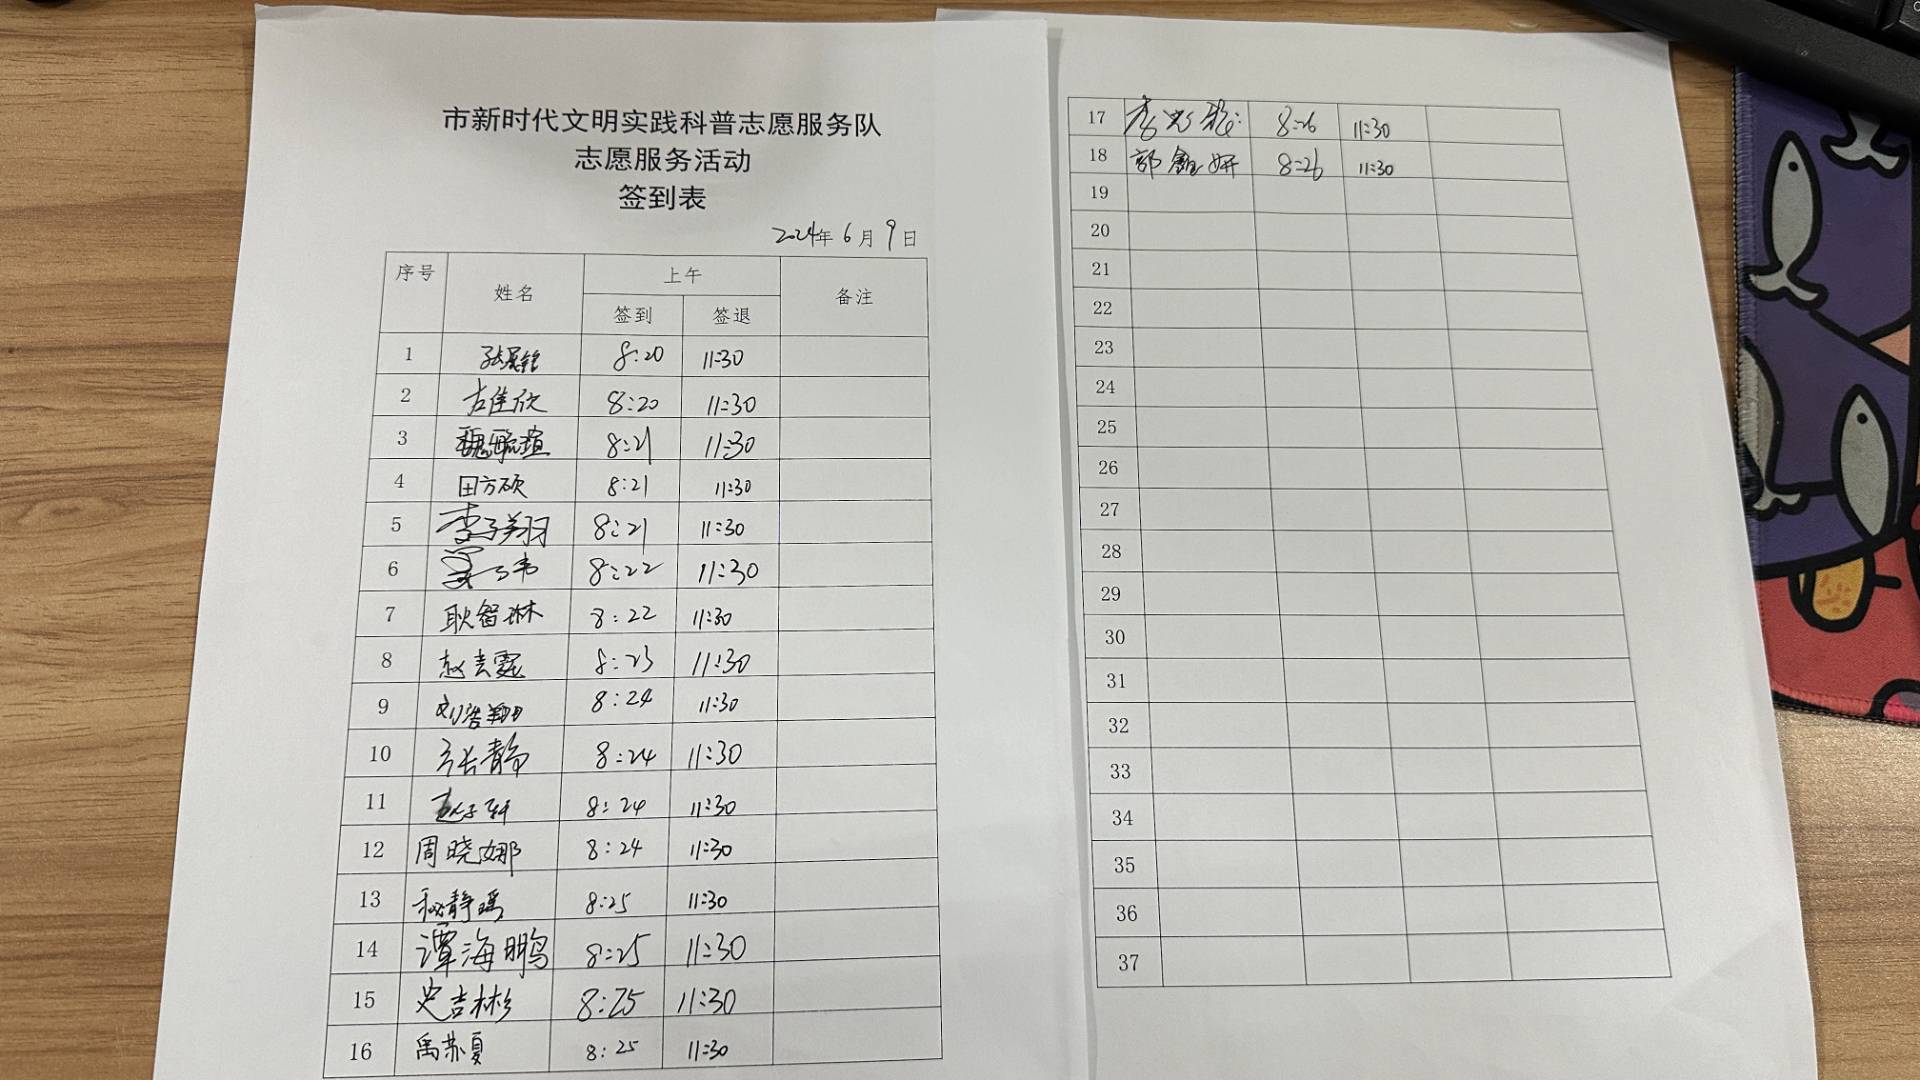 市新时代文明实践科普志愿服务队
志愿服务活动
签到表
2024年6月9日
序号 姓名 上午 备注
签到 签退
1 8:20 11:30
2 古佳欣 8:20 11:30
3 魏毓瑄 8:21 11:30
4 田方硕 8:21 11:30
5 李子翔 8:21 11:30
6 8:22 11:30
7 耿智琳 8:22 11:30
8 赵吉霆 8:23 11:30
9 刘浩翔 8:24 11:30
10 张静 8:24 11:30
11 8:24 11:30
12 周晓娜 8:24 11:30
13 秘静瑶 8:25 11:30
14 谭海鹏 8:25 11:30
15 史吉彬 8:25 11:30
16 禹苏夏 8:25 11:30
17 8:26 11:30
18 郭鑫妍 8:26 11:30
19
20
21
22
23
24
25
26
27
28
29
30
31
32
33
34
35
36
37